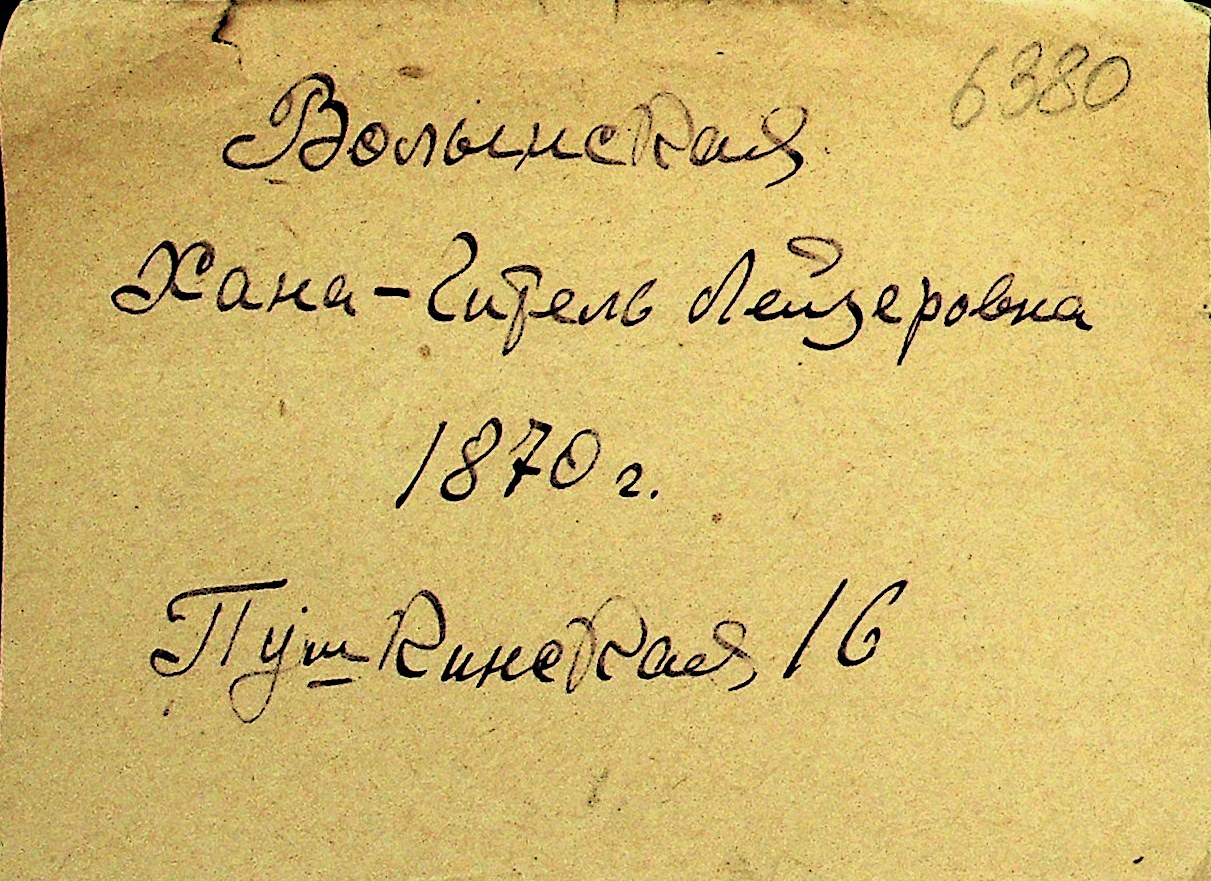 6380
Волынская
Хана-Гитель Лейзеровна
1870 г.
Пушкинская 16